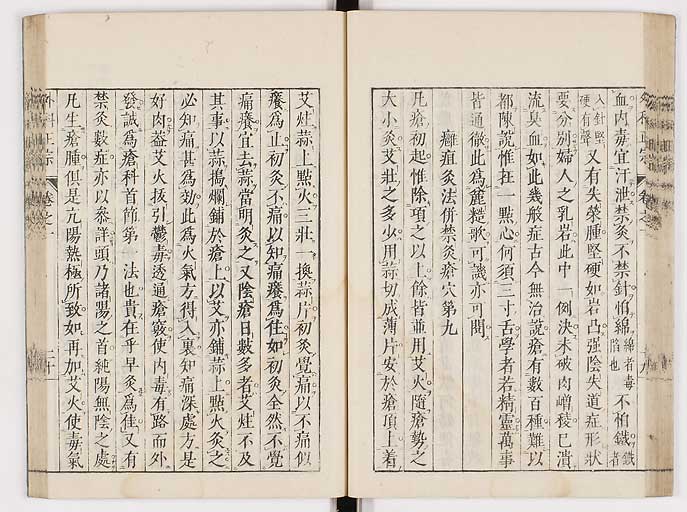 血內毒宜汗泄禁灸不禁針惧綿綿者毒陷也不怕鐵鐵者
入針堅硬有聲又有失榮腫堅硬如岩凸强陰失道症形狀
要分別婦人之乳岩此中一例決未破肉嶒稜已潰
流臭血如此幾般症古今無治說瘡有數百種難以
都陳說惟在一點心何須三寸舌學者若精靈萬事
皆通徹此爲麄糙歌可識亦可閱
癰疽灸法併禁灸瘡穴第九
凡瘡初起惟除項之以上餘皆並用艾火隨瘡勢之
大小灸艾壯之多少用蒜切成薄片安於瘡頂上着
艾炷蒜上點火三壯一換蒜片初灸覺痛以不痛似
癢爲止初灸不痛以知痛癢爲住如初灸全然不覺
痛癢宜去蒜當明灸之又陰瘡日數多者艾炷不及
其事以蒜搗爛鋪於瘡上以艾亦鋪蒜上點火灸之
必知痛甚爲効此爲火氣方得入裏知痛深處方是
好肉葢艾火抜引鬱毒透通瘡竅使內毒有路而外
發誠爲瘡科首節第一法也貴在乎早灸爲佳又有
禁灸數症亦以叅詳頭乃諸陽之首純陽無陰之處
凡生瘡腫俱是亢陽熱極所致如再加艾火使毒氣
外科正宗
卷之一
二十